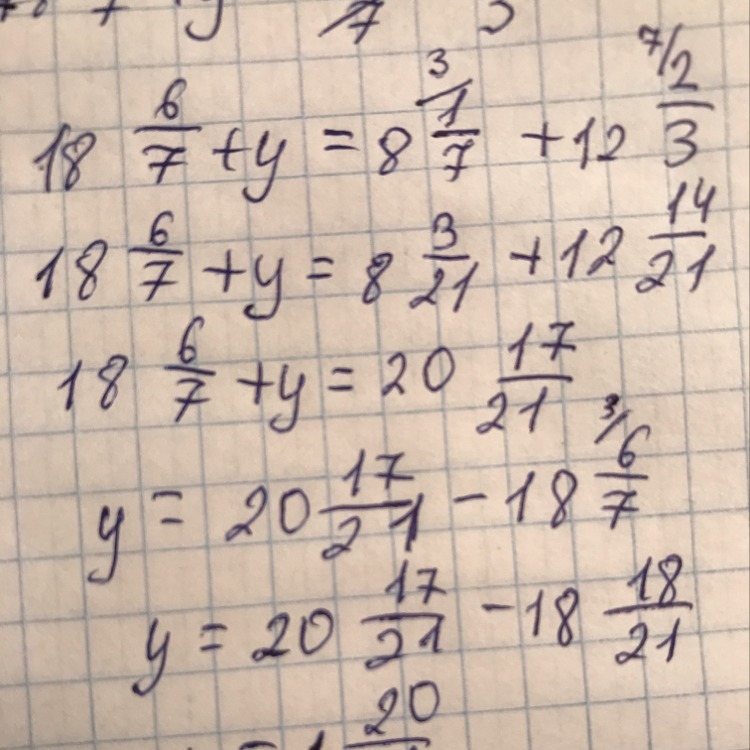 18 6/7 + y = 8 3/ 1/7 + 12 7/ 2/3
18 6/7 + y = 8 3/21 + 12 14/21
18 6/7 + y = 20 17/21
y = 20 17/21 - 18 3/ 6/7
y = 20 17/21 - 18 18/21
= 1 20